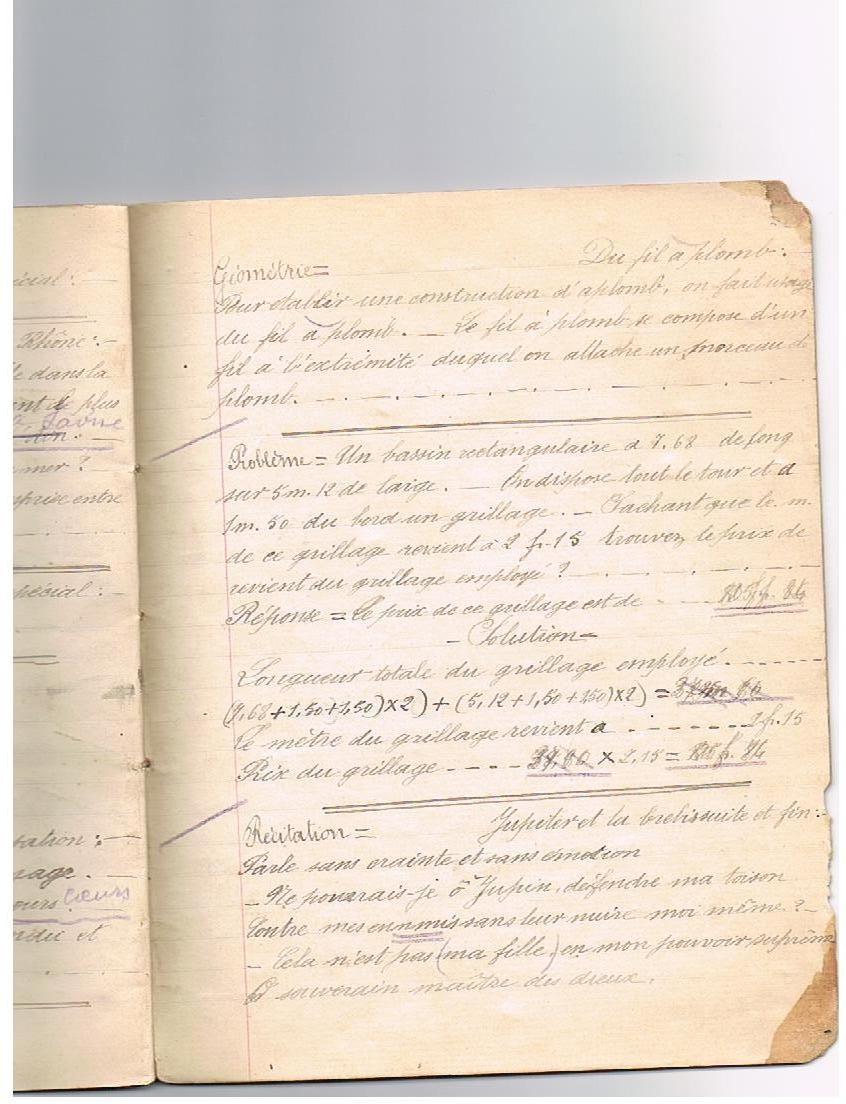 écial :
Rhône :
dans la
de plus
Saône
mer ?
prise entre
spécial :
sation :
sage
cours cœurs
et
Du fil à plomb :
Géométrie =
Pour etablir une construction d'aplomb, on fait usage
du fil à plomb. _ Le fil à plomb se compose d'un
fil à l'extrémité duquel on attache un morceau de
plomb.
Problème = Un bassin rectangulaire a 7,68 de long
sur 5m.12 de large. _ On dispose tout le tour et a
1m.50 du bord un grillage. _ Sachant que le m.
de ce grillage revient à 2 fr.15 trouvez le prix de
revient du grillage employé ?
Réponse = Le prix de ce grillage est de
_ Solution =
Longueur totale du grillage employé.
(7,68+1,50+1,50)×2) + (5,12+1,50+1,50)×2) =
Le mètre du grillage revient a 2 fr.15
Prix du grillage × 2,15 =
Récitation = Jupiter et la brebis suite et fin :
Parle sans crainte et sans émotion
_ Ne pourrais-je ô Jupin, défendre ma toison
Contre mes ennmis sans leur nuire moi même ?_
_ Cela n'est pas (ma fille) en mon pouvoir suprême
souverain maître des dieux.